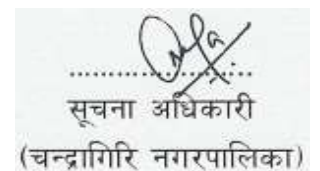 ........................
सूचना अधिकारी
(चन्द्रागिरि नगरपालिका)